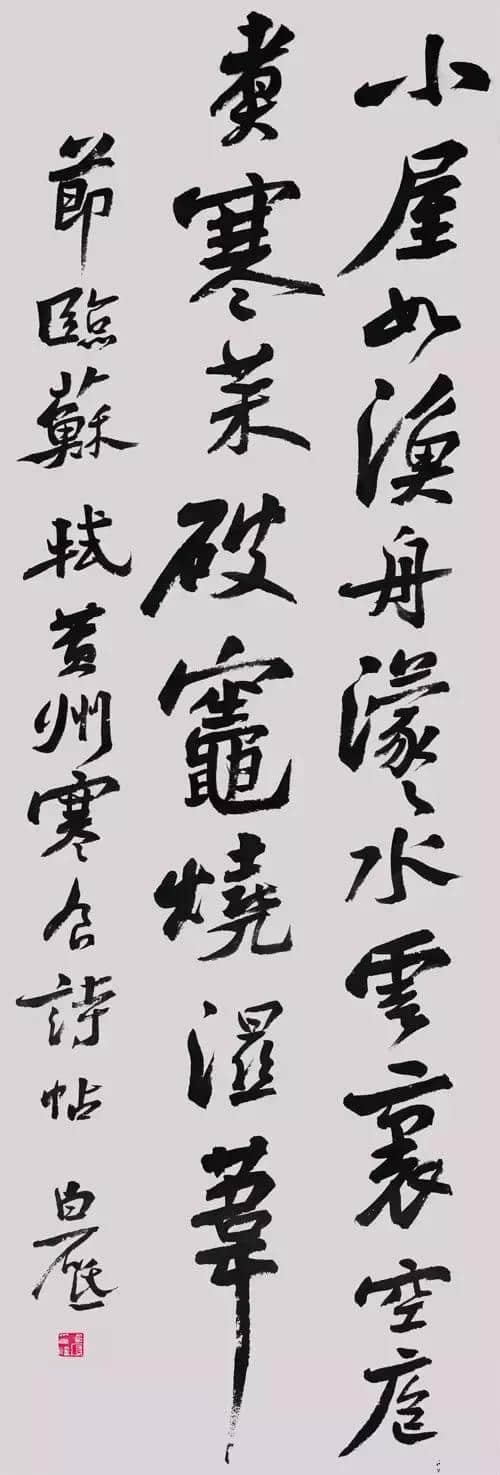 小屋如漁舟濛〻水雲裏空庖
煮寒菜破竈燒濕葦
節臨蘇軾黃州寒食詩帖 白砥